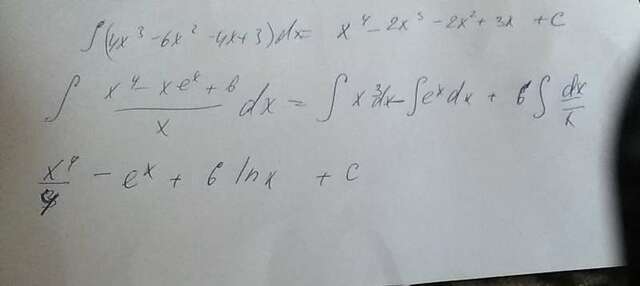 ∫(4x³ - 6x² - 4x + 3)dx = x⁴ - 2x³ - 2x² + 3x + C
∫ (x⁴ - xeˣ + 6)/x dx = ∫x³dx - ∫eˣdx + 6∫dx/x
x⁴/4 - eˣ + 6 ln x + C